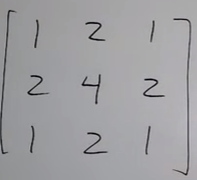 1 2 1
2 4 2
1 2 1